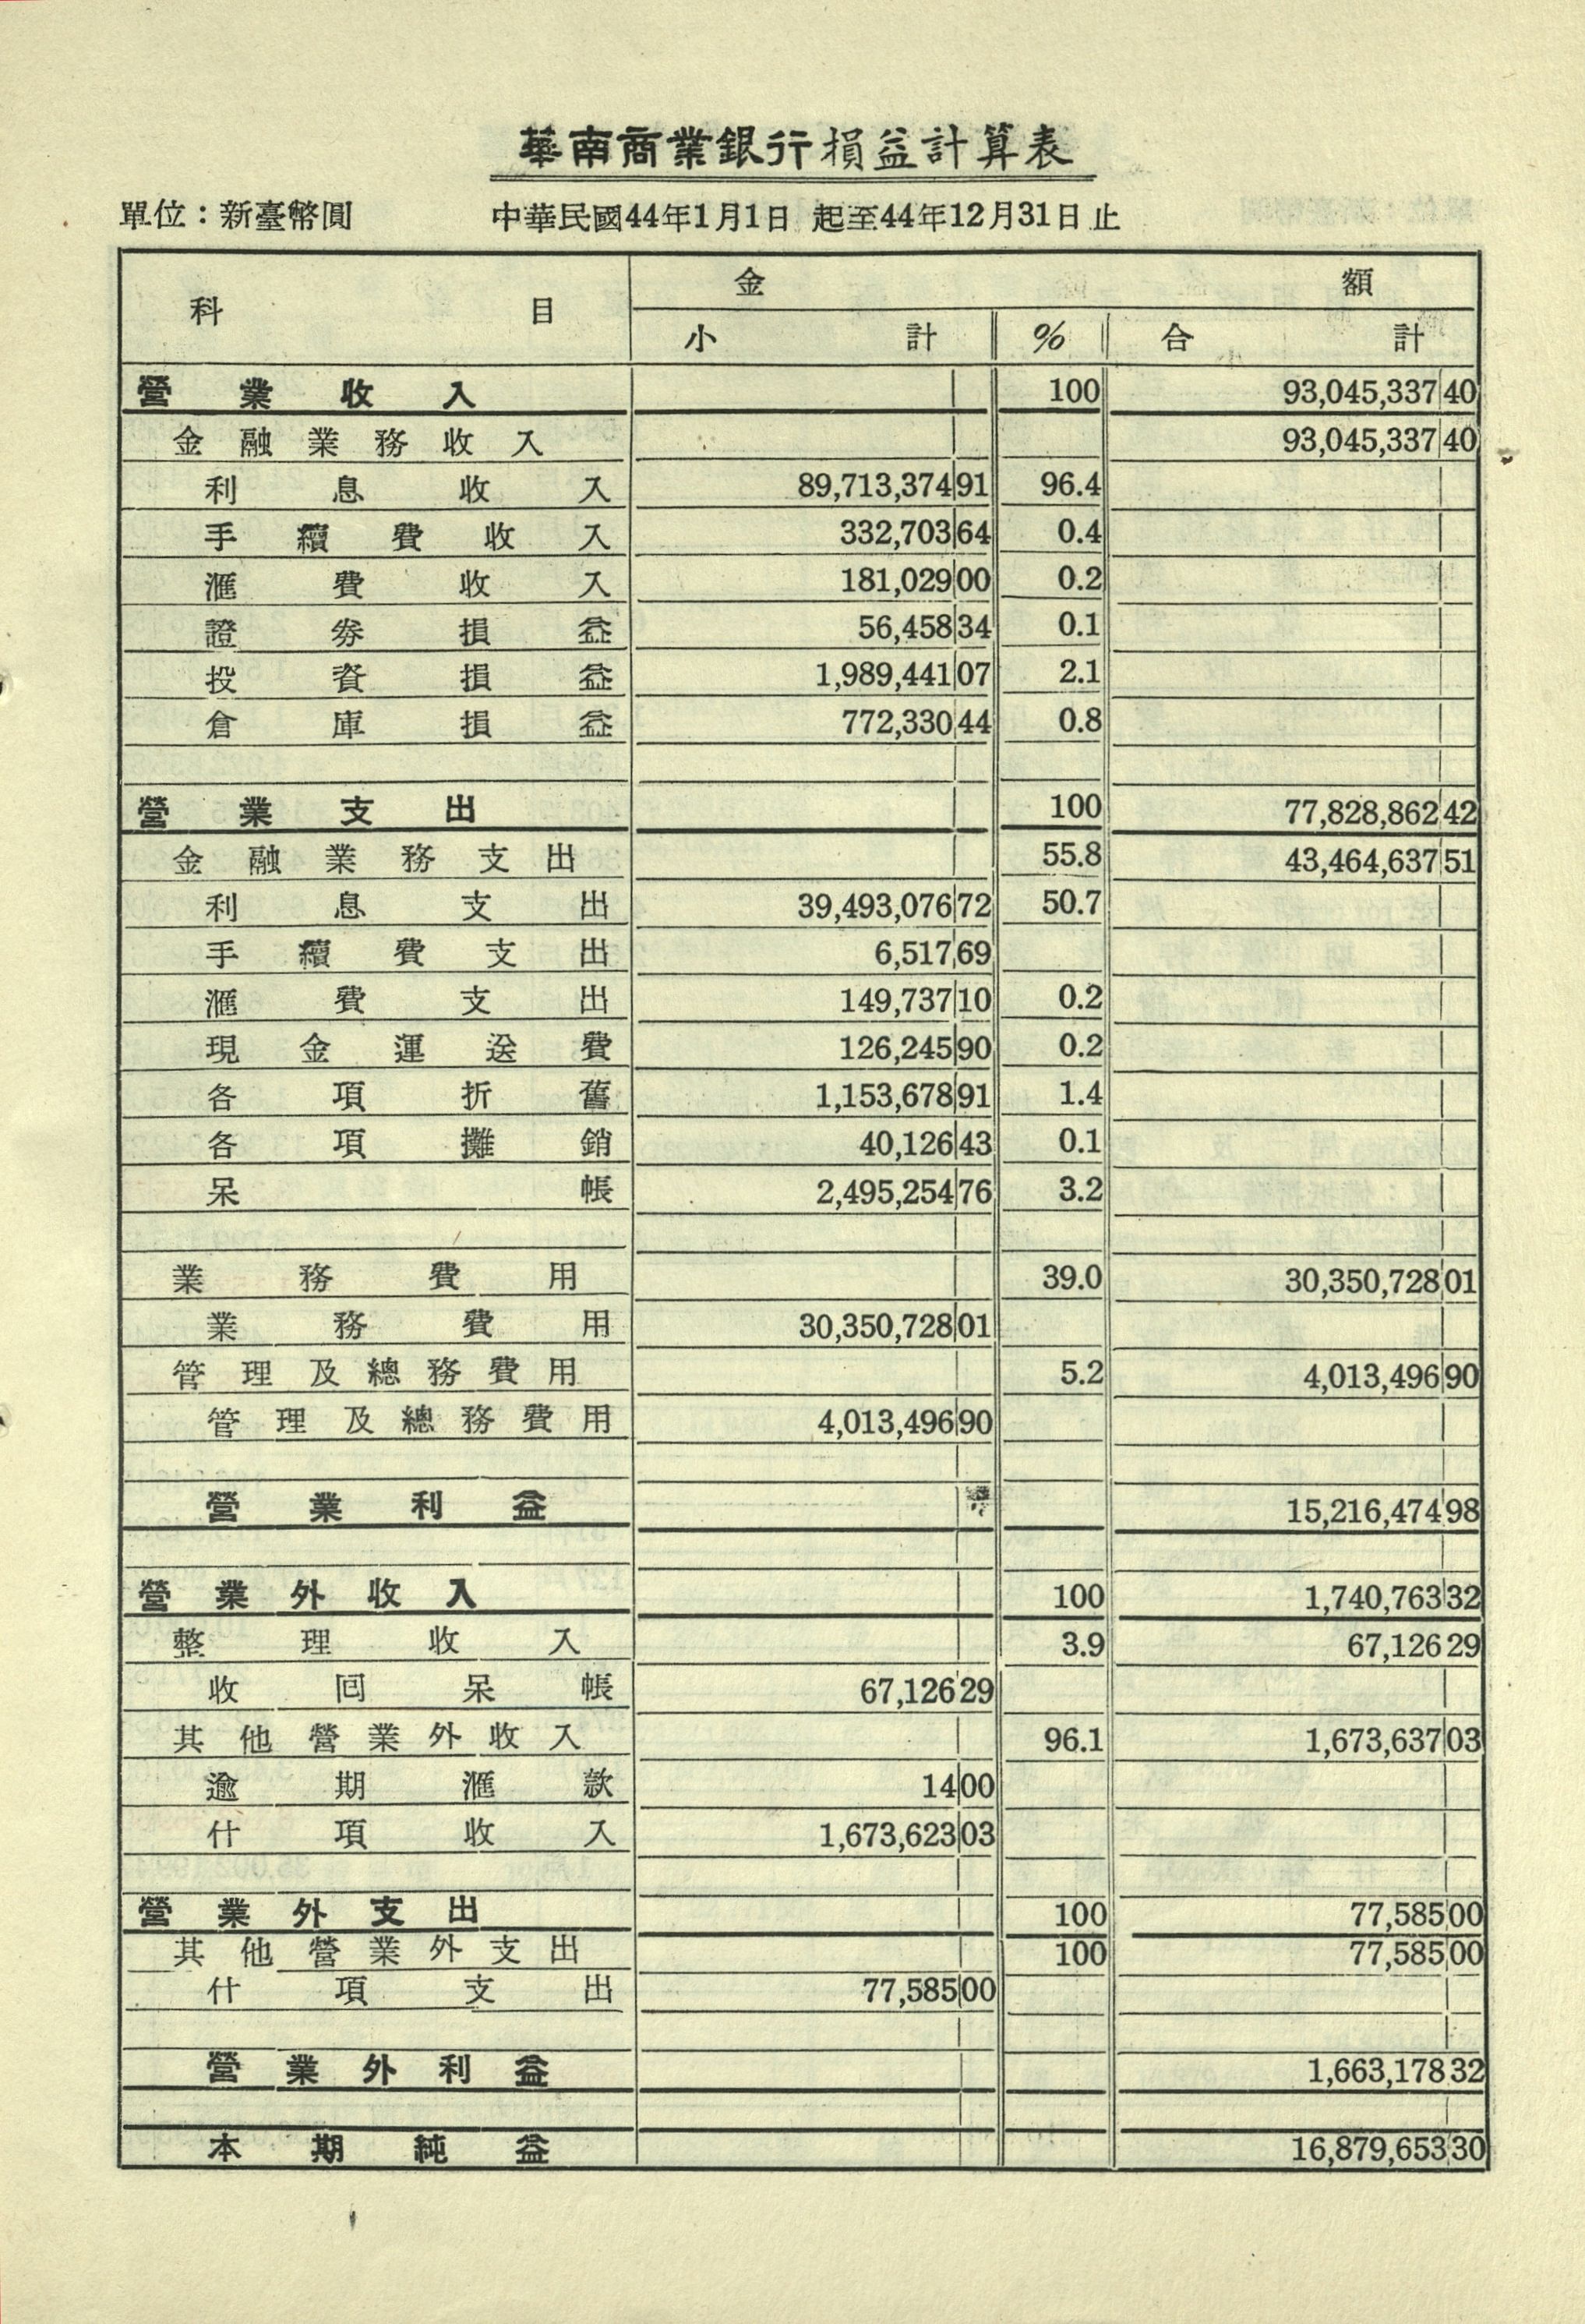 華南商業銀行損益計算表
單位：新臺幣圓 中華民國44年1月1日 起至44年12月31日止
科目 金額
小計 % 合計
營業收入 100 93,045,337 40
金融業務收入 93,045,337 40
利息收入 89,713,374 91 96.4
手續費收入 332,703 64 0.4
滙費收入 181,029 00 0.2
證券損益 56,458 34 0.1
投資損益 1,989,441 07 2.1
倉庫損益 772,330 44 0.8
營業支出 100 77,828,862 42
金融業務支出 55.8 43,464,637 51
利息支出 39,493,076 72 50.7
手續費支出 6,517 69
滙費支出 149,737 10 0.2
現金運送費 126,245 90 0.2
各項折舊 1,153,678 91 1.4
各項攤銷 40,126 43 0.1
呆帳 2,495,254 76 3.2
業務費用 39.0 30,350,728 01
業務費用 30,350,728 01
管理及總務費用 5.2 4,013,496 90
管理及總務費用 4,013,496 90
營業利益 15,216,474 98
營業外收入 100 1,740,763 32
整理收入 3.9 67,126 29
收回呆帳 67,126 29
其他營業外收入 96.1 1,673,637 03
逾期滙款 14 00
什項收入 1,673,623 03
營業外支出 100 77,585 00
其他營業外支出 100 77,585 00
什項支出 77,585 00
營業外利益 1,663,178 32
本期純益 16,879,653 30